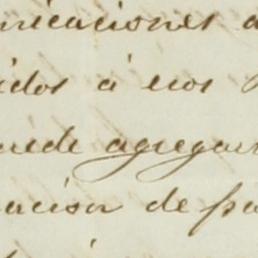 nicaciones a
idos á esos
uede agregar
acion de pa